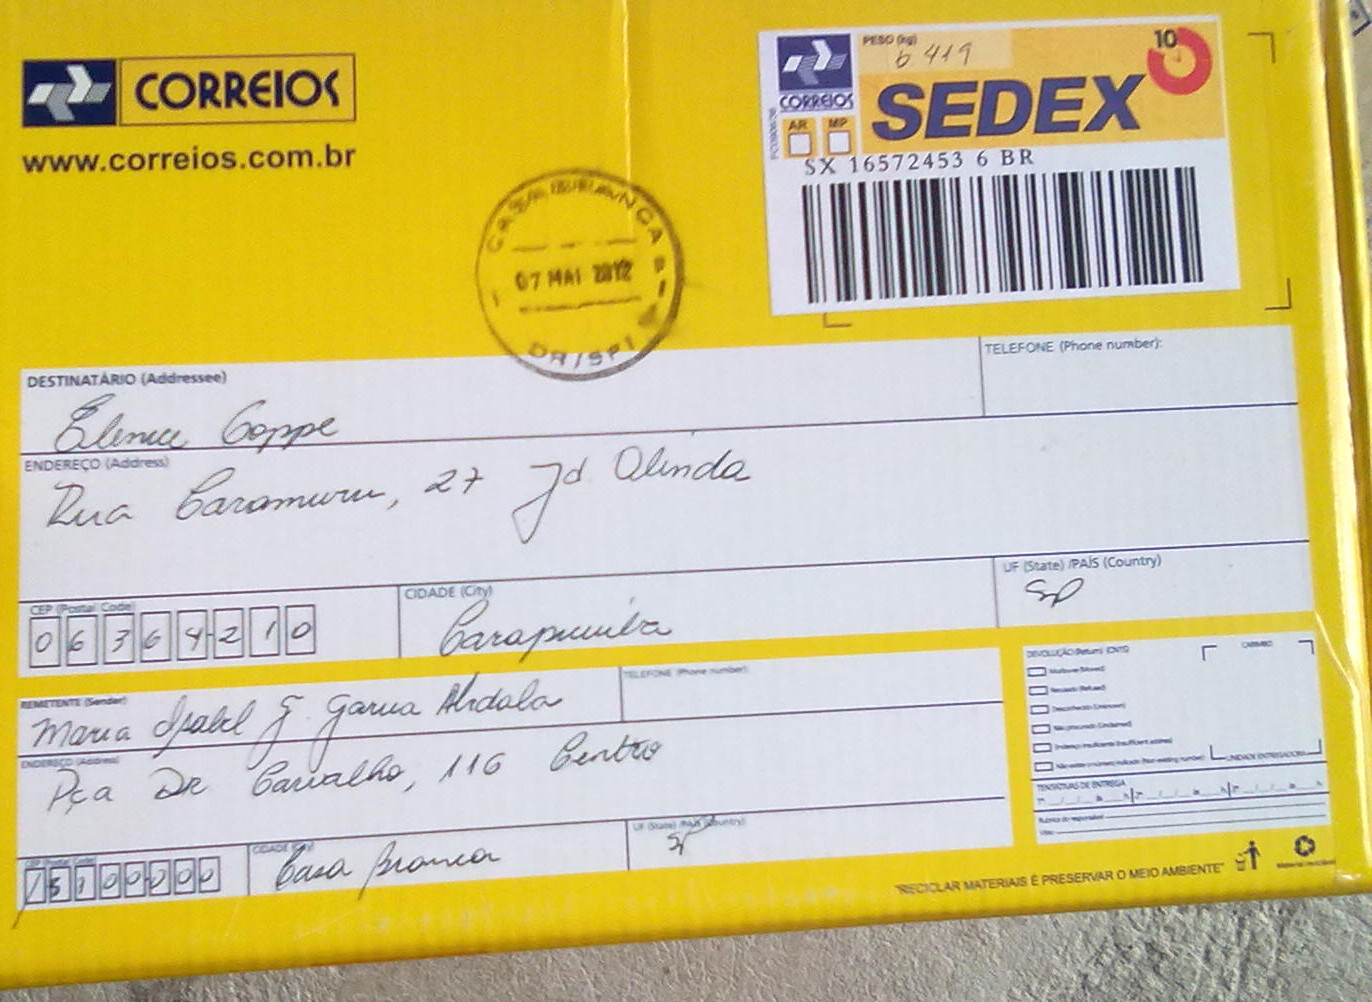 CORREIOS
www.correios.com.br
PESO (kg)
6 419
10
CORREIOS
SEDEX
AR MP
SX 16572453 6 BR
CASA BRANCA
07 MAI 2012
DR/SPI
DESTINATÁRIO (Addressee)
TELEFONE (Phone number):
Elenice Coppe
ENDEREÇO (Address)
Rua Caramuru, 27 Jd Olinda
CEP (Postal Code)
06364-210
CIDADE (City)
Carapicuiba
UF (State) /PAÍS (Country)
SP
REMETENTE (Sender)
TELEFONE (Phone number):
Maria Isabel G. Garcia Abdala
ENDEREÇO (Address)
Pça Dr Carvalho, 116 Centro
CEP (Postal Code)
CIDADE (City)
Casa Branca
UF (State) /PAÍS (Country)
SP
DEVOLUÇÃO (Return) (CN15)
CARIMBO
Mudou-se (Moved)
Recusado (Refused)
Desconhecido (Unknown)
Não procurado (Unclaimed)
Endereço insuficiente (Insufficient address)
Não existe o número indicado (Non existing number)
UNIDADE ENTREGADORA
TENTATIVAS DE ENTREGA
Rubrica do responsável
Visto
"RECICLAR MATERIAIS É PRESERVAR O MEIO AMBIENTE"